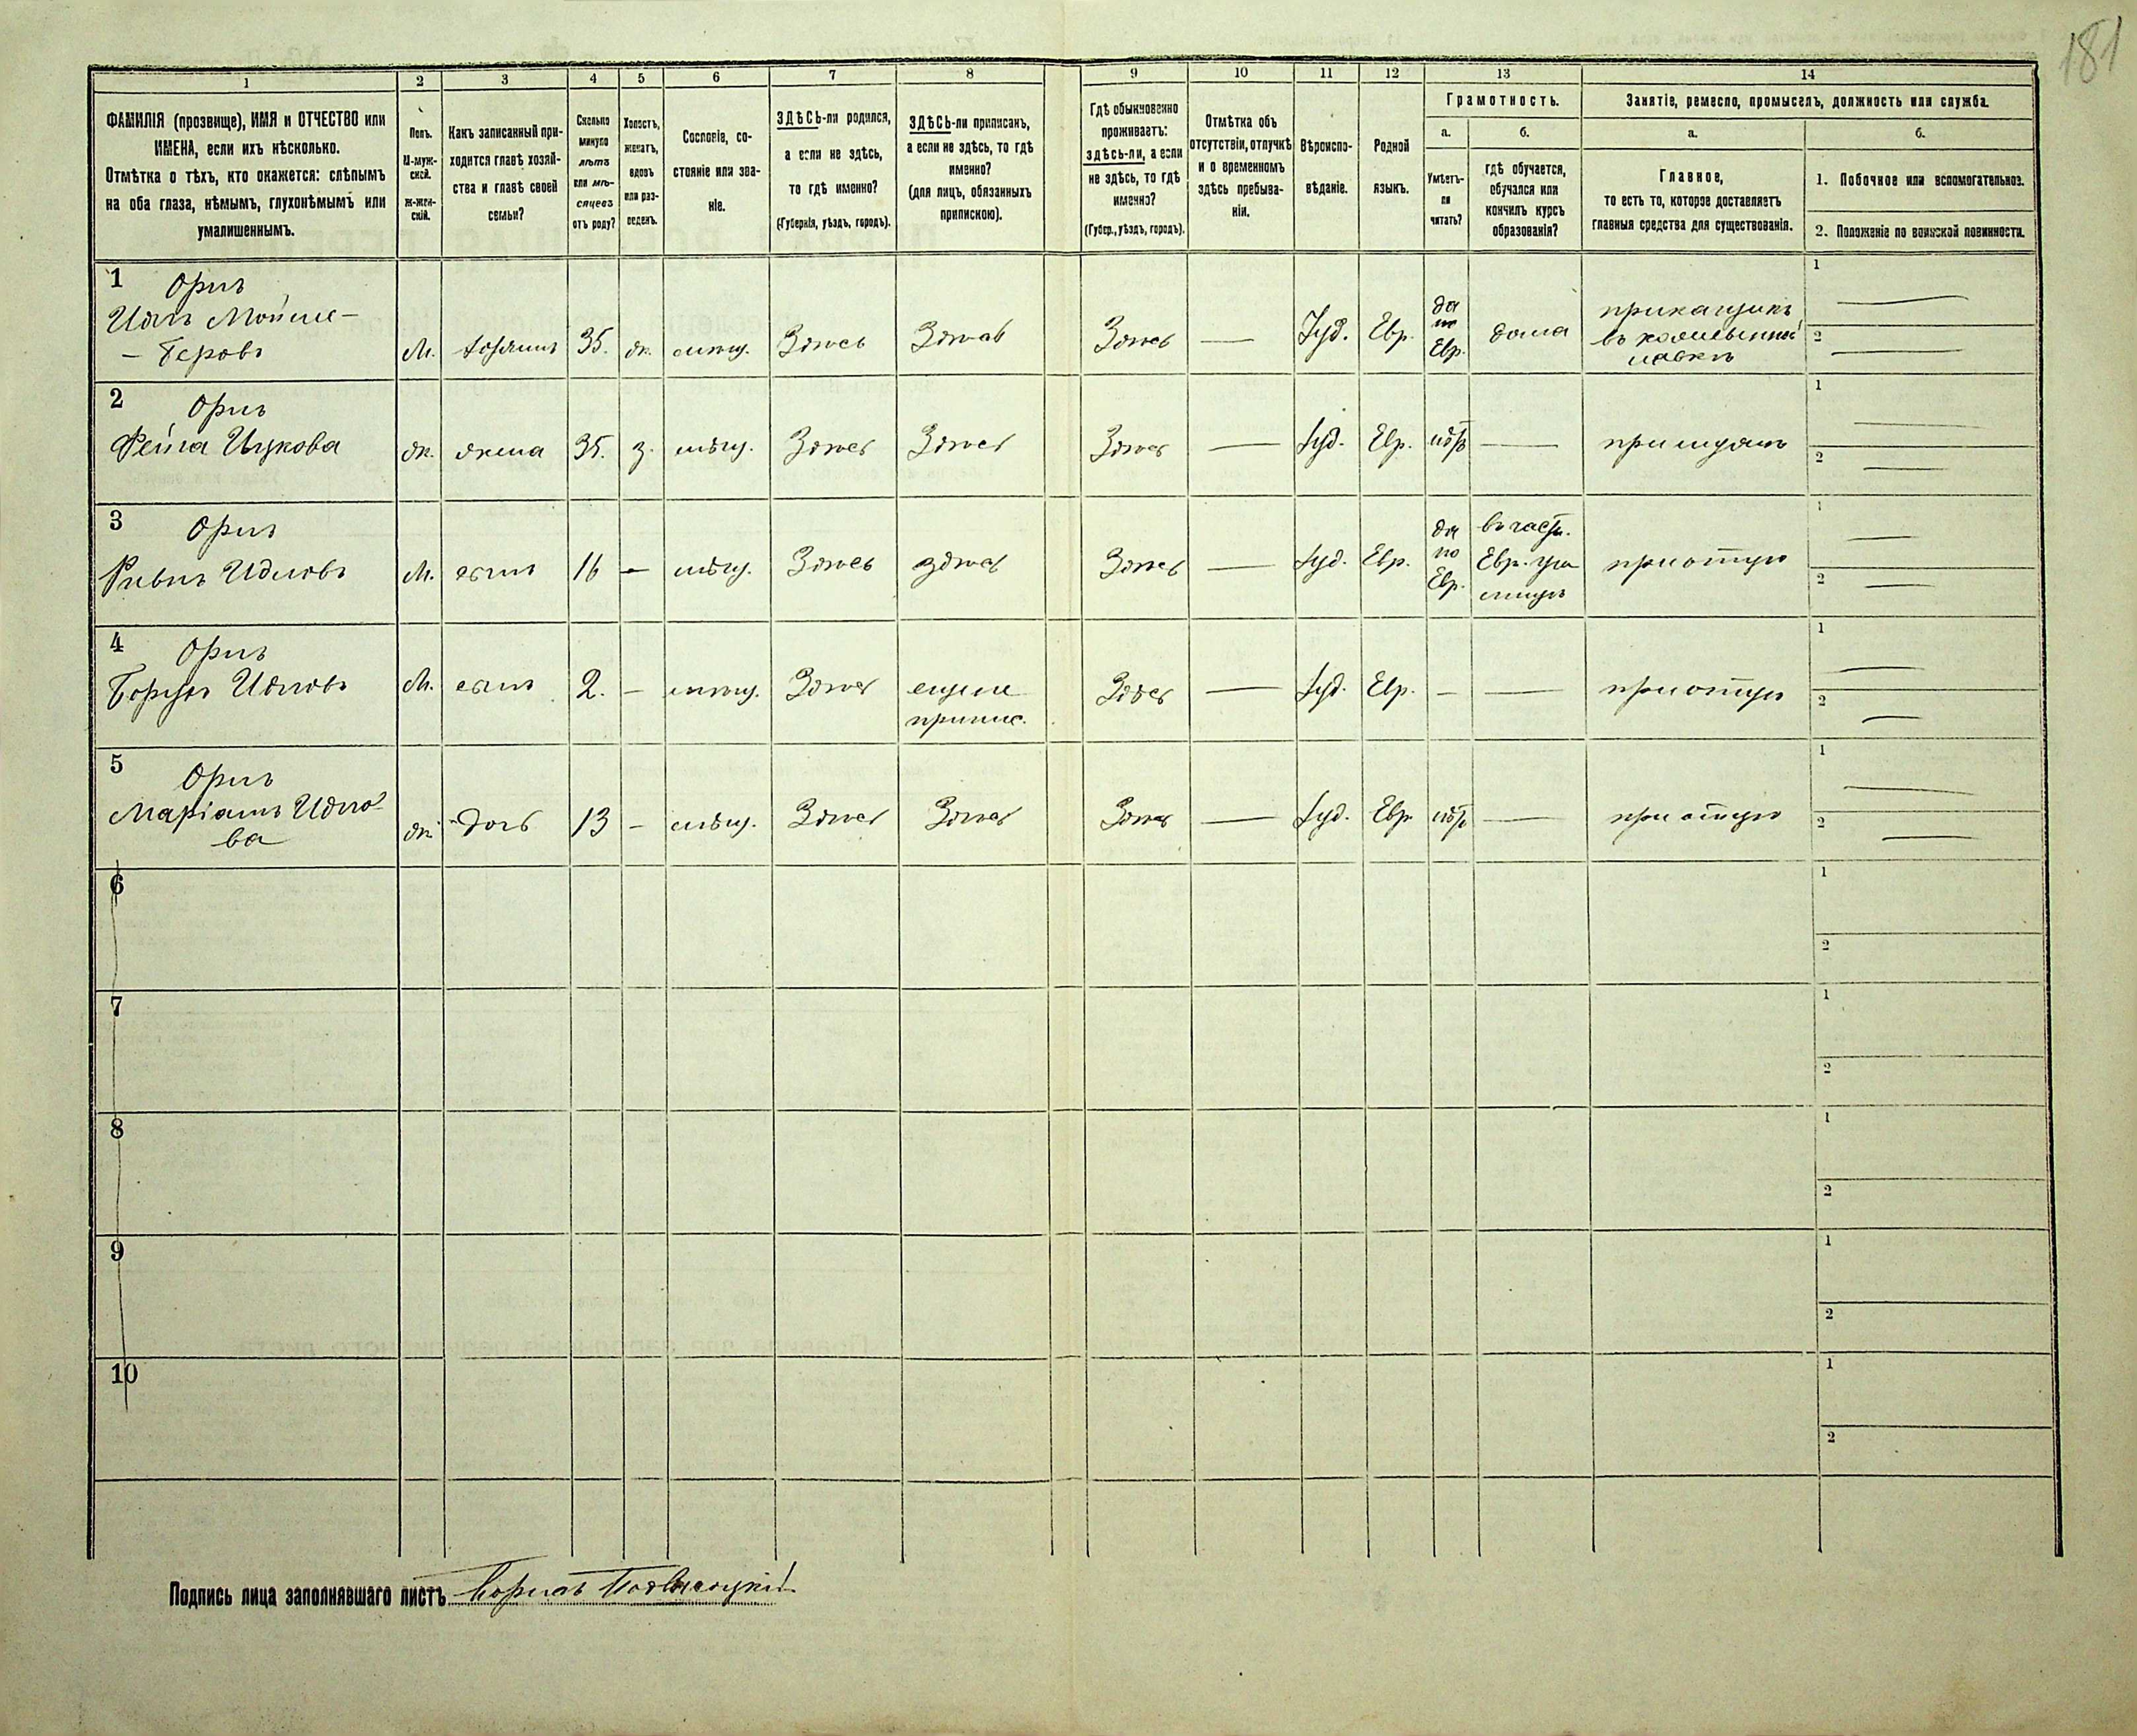 181
1 2 3 4 5 6 7 8 9 10 11 12 13 14
ФАМИЛІЯ (прозвище), ИМЯ и ОТЧЕСТВО или
ИМЕНА, если ихъ нѣсколько.
Отмѣтка о тѣхъ, кто окажется: слѣпымъ
на оба глаза, нѣмымъ, глухонѣмымъ или
умалишеннымъ.
Полъ.
М-муж-
ской.
Ж-жен-
скій.
Какъ записанный при-
ходится главѣ хозяй-
ства и главѣ своей
семьи?
Сколько
минуло
лѣтъ
или мѣ-
сяцевъ
отъ роду?
Холостъ,
женатъ,
вдовъ
или раз-
веденъ.
Сословіе, со-
стояніе или зва-
ніе.
ЗДѢСЬ-ли родился,
а если не здѣсь,
то гдѣ именно?
(Губернія, уѣздъ, городъ).
ЗДѢСЬ-ли приписанъ,
а если не здѣсь, то гдѣ
именно?
(для лицъ, обязанныхъ
припискою).
Гдѣ обыкновенно
проживаетъ:
здѣсь-ли, а если
не здѣсь, то гдѣ
именно?
(Губер., уѣздъ, городъ).
Отмѣтка объ
отсутствіи, отлучкѣ
и о временномъ
здѣсь пребыва-
ніи.
Вѣроиспо-
вѣданіе.
Родной
языкъ.
Грамотность.
а.
Умѣетъ-
ли
читать?
б.
гдѣ обучается,
обучался или
кончилъ курсъ
образованія?
Занятіе, ремесло, промыселъ, должность или служба.
а.
Главное,
то есть то, которое доставляетъ
главныя средства для существованія.
б.
1. Побочное или вспомогательное.
2. Положеніе по воинской повинности.
1 Орлъ
Идлъ Мойше-
- Беровъ
М. хозяинъ 35. ж. мѣщ. Здѣсь Здѣсь Здѣсь — Іуд. Евр.
да
по
Евр.
дома
прикащикъ
въ
лавкѣ
1 —
2 —
2 Орлъ
Фейга Ицкова
ж. жена 35. з. мѣщ. Здѣсь Здѣсь Здѣсь — Іуд. Евр. — при мужѣ
1 —
2 —
3 Орлъ
Идловъ
М. сынъ 16 – мѣщ. Здѣсь здѣсь Здѣсь — Іуд. Евр.
да
по
Евр.
въ частн.
Евр. учи
лищѣ
при отцѣ
1 —
2 —
4 Орлъ
Борухъ Идловъ
М. сынъ 2. – мѣщ. Здѣсь
еще не
припис.
Здѣсь — Іуд. Евр. – — при отцѣ
1 —
2 —
5 Орлъ
Маріашъ Идло-
ва
ж. дочь 13 – мѣщ. Здѣсь Здѣсь Здѣсь — Іуд. Евр. — при отцѣ
1 —
2 —
6 1
2
7 1
2
8 1
2
9 1
2
10 1
2
Подпись лица заполнявшаго листъ